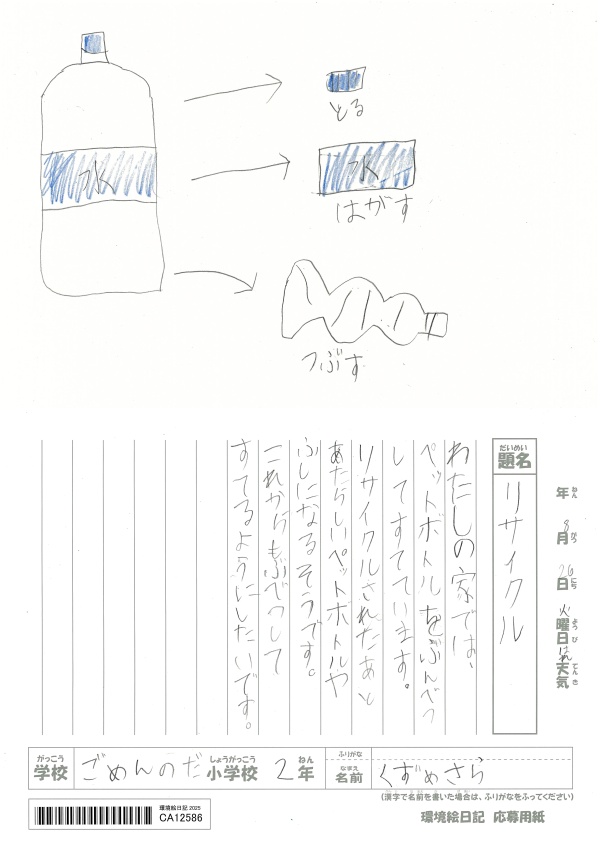 水
とる
水
はがす
つぶす
年 8月 26日 火曜日 はれ天気
ねん がつ にち ようび てんき
だいめい
題名
リサイクル
わたしの家では、
ペットボトルをぶんべつ
してすてています。
リサイクルされたあと
あたらしいペットボトルや
ふくになるそうです。
これからもぶんべつして
すてるようにしたいです。
がっこう
学校
ごめんのだ
しょうがっこう
小学校
2
ねん
年
ふりがな
なまえ
名前
くずめさら
(漢字で名前を書いた場合は、ふりがなをふってください)
環境絵日記 2025
CA12586
環境絵日記 応募用紙